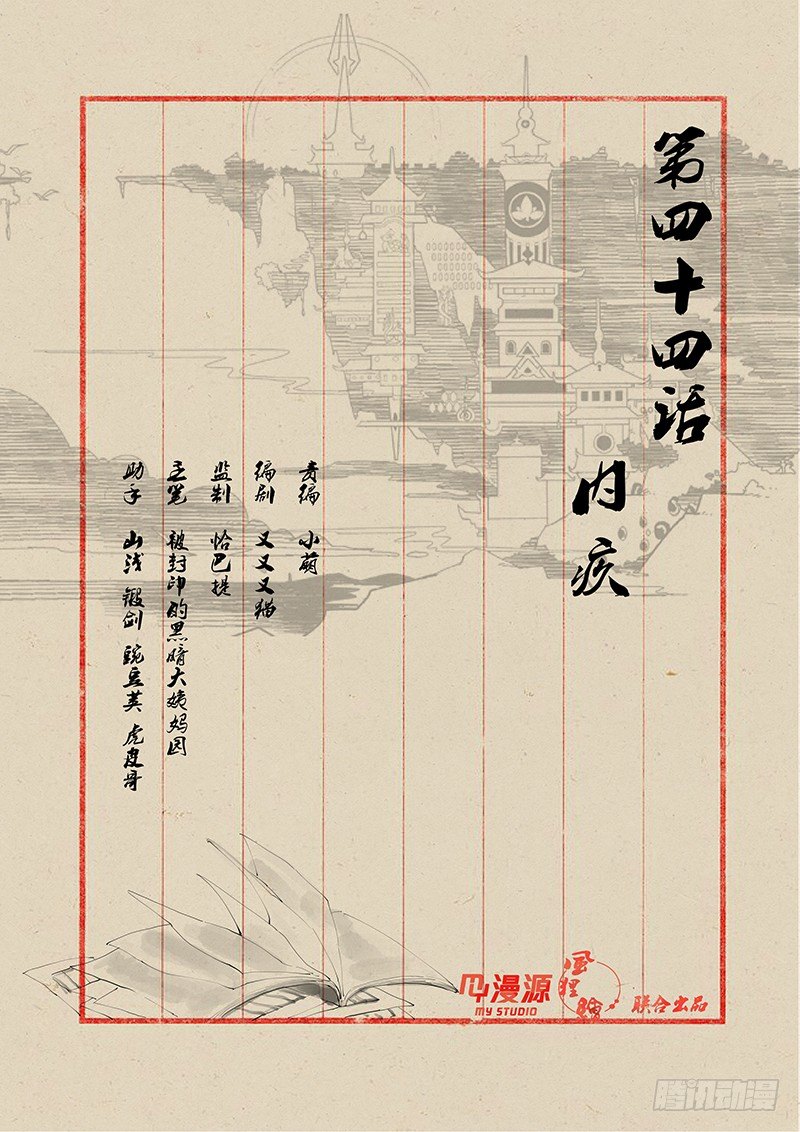 第四十四话
内疾
责编 小萌
编剧 又又又猫
监制 恰巴提
主笔 被封印的黑暗大姨妈园
助手 山浅 锻剑 豌豆荚 虎皮哥
漫源
MY STUDIO
联合出品
腾讯动漫